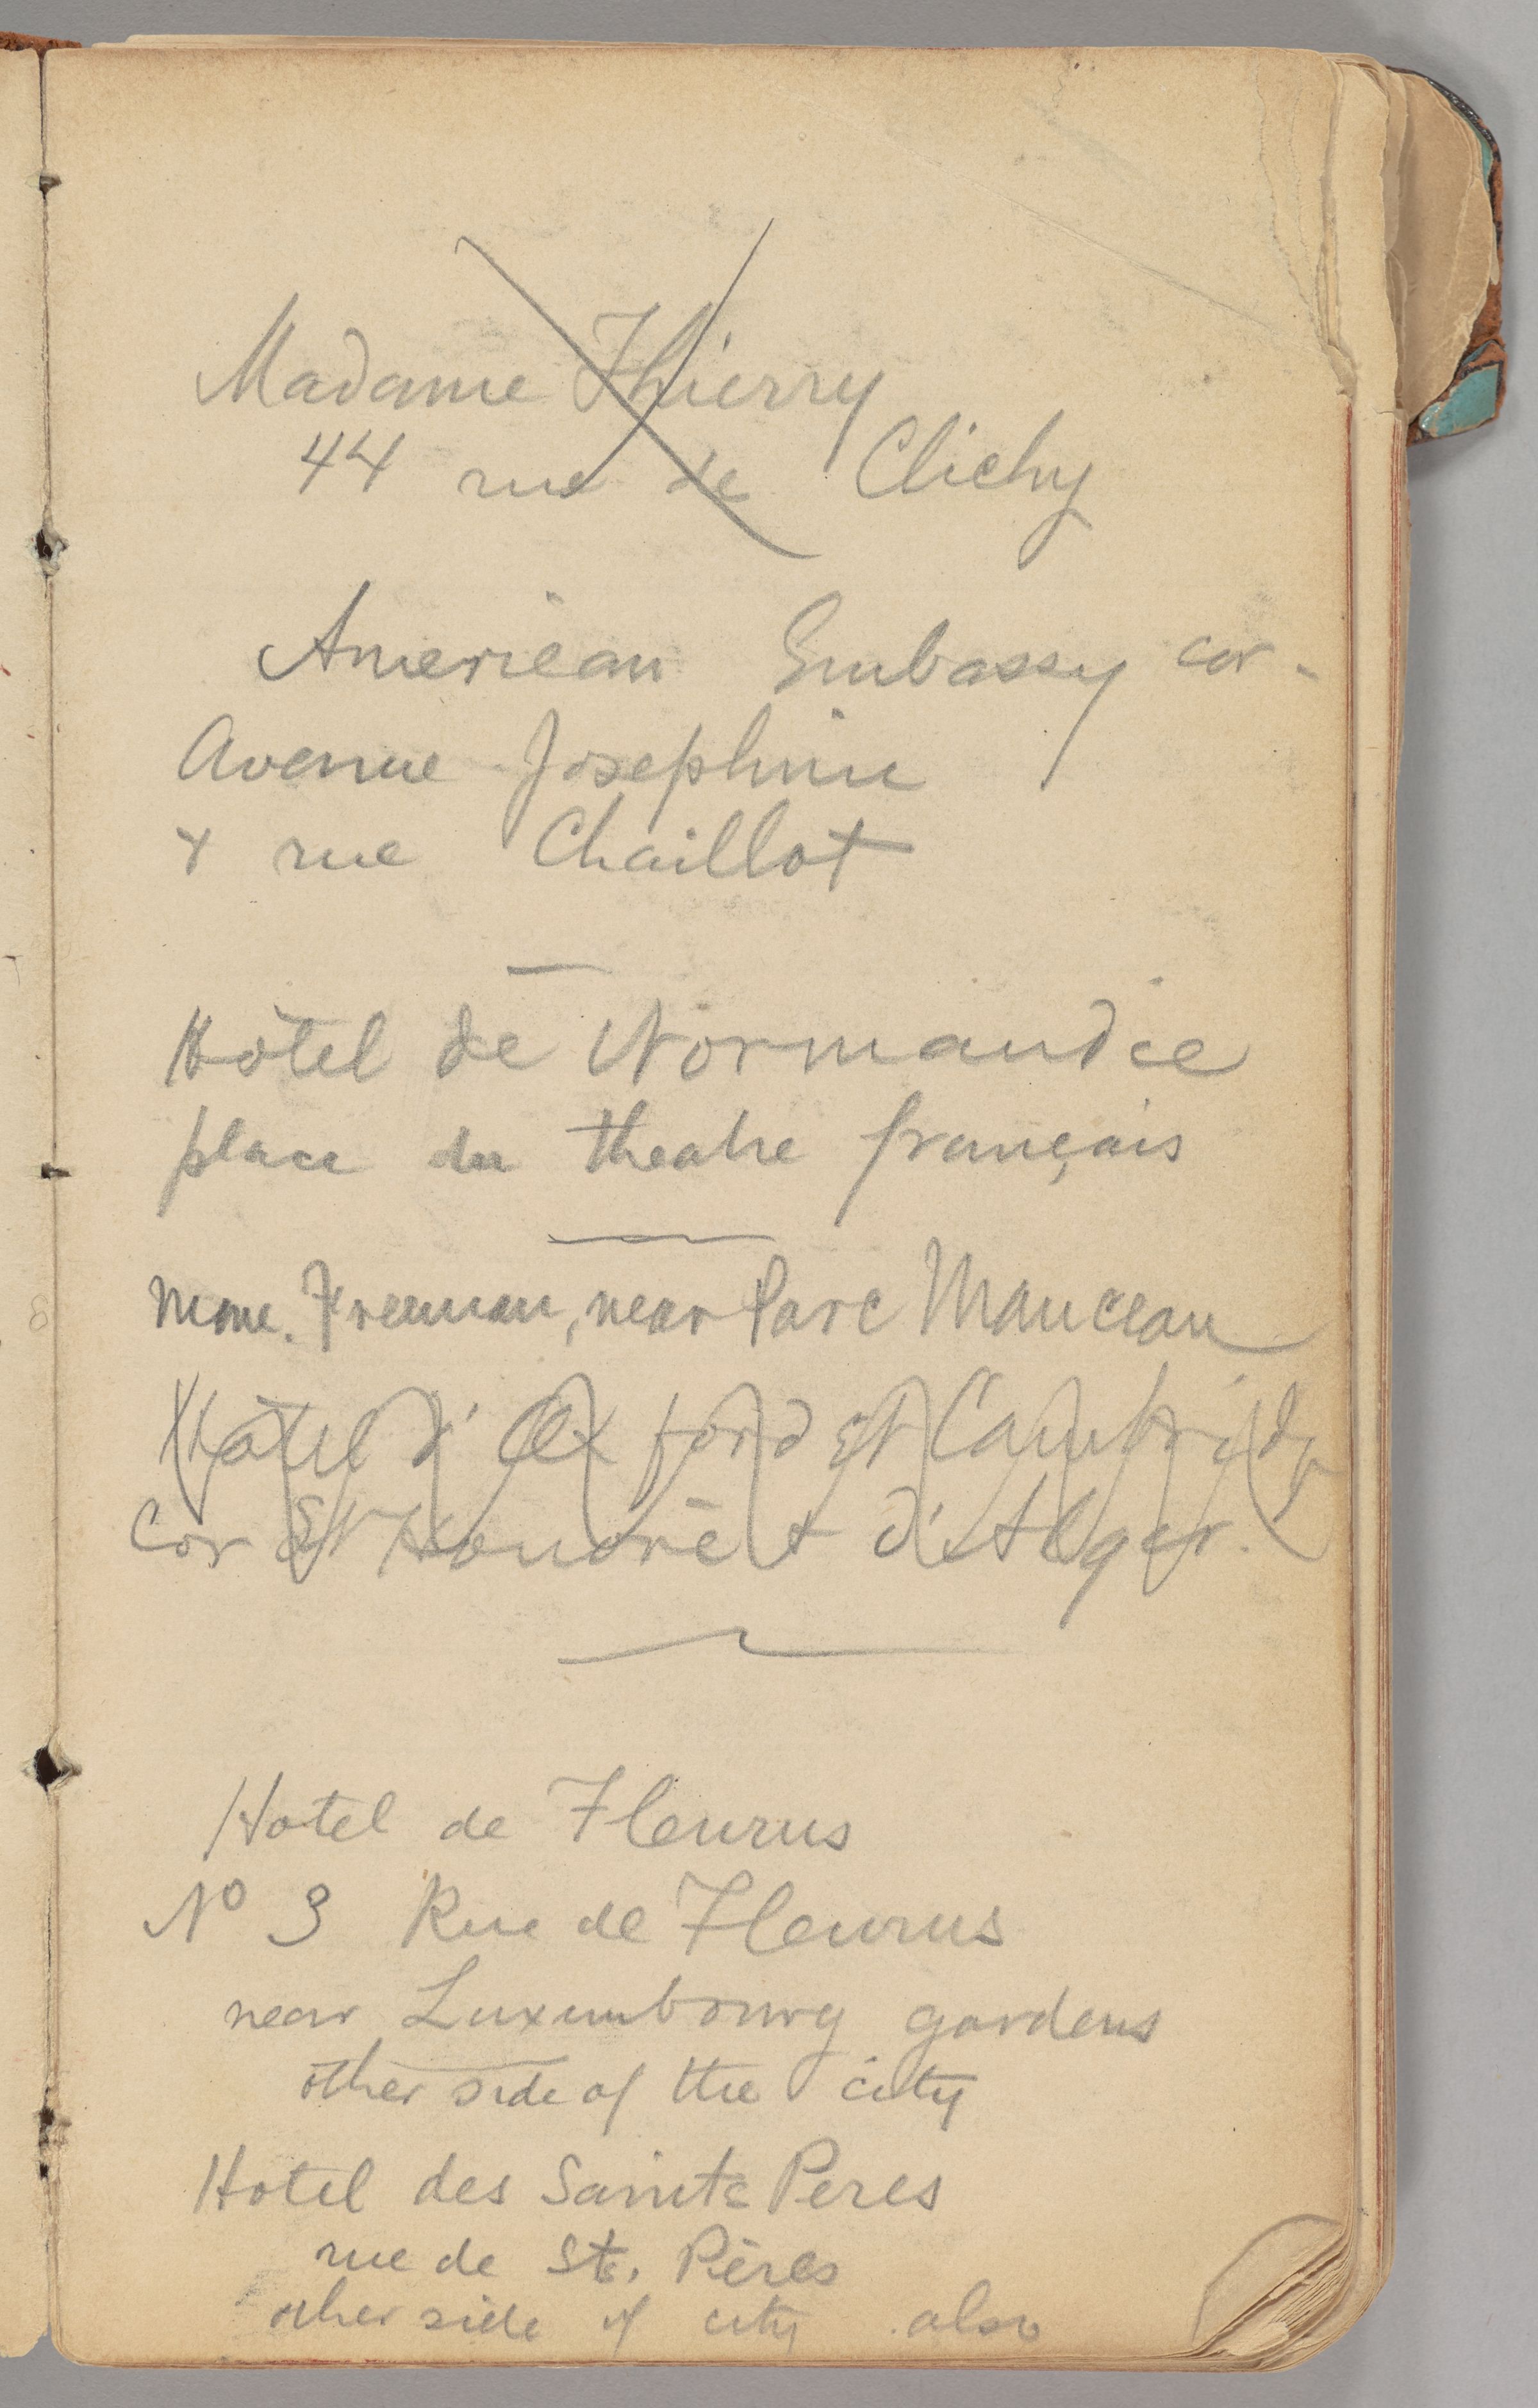 Madame Thierry
44 rue de Clichy
American Embassy cor.
Avenue Josephine
& rue Chaillot
Hôtel de Normandie
place du theatre français
Mme. Freeman, near Parc Mauceau
Hôtel d'Oxford et Cambridge
Cor St Honoré & d'Alger.
Hotel de Fleurus
No 3 Rue de Fleurus
near Luxembourg gardens
other side of the city
Hotel des Saints Peres
rue de Sts. Pères
other side of city also